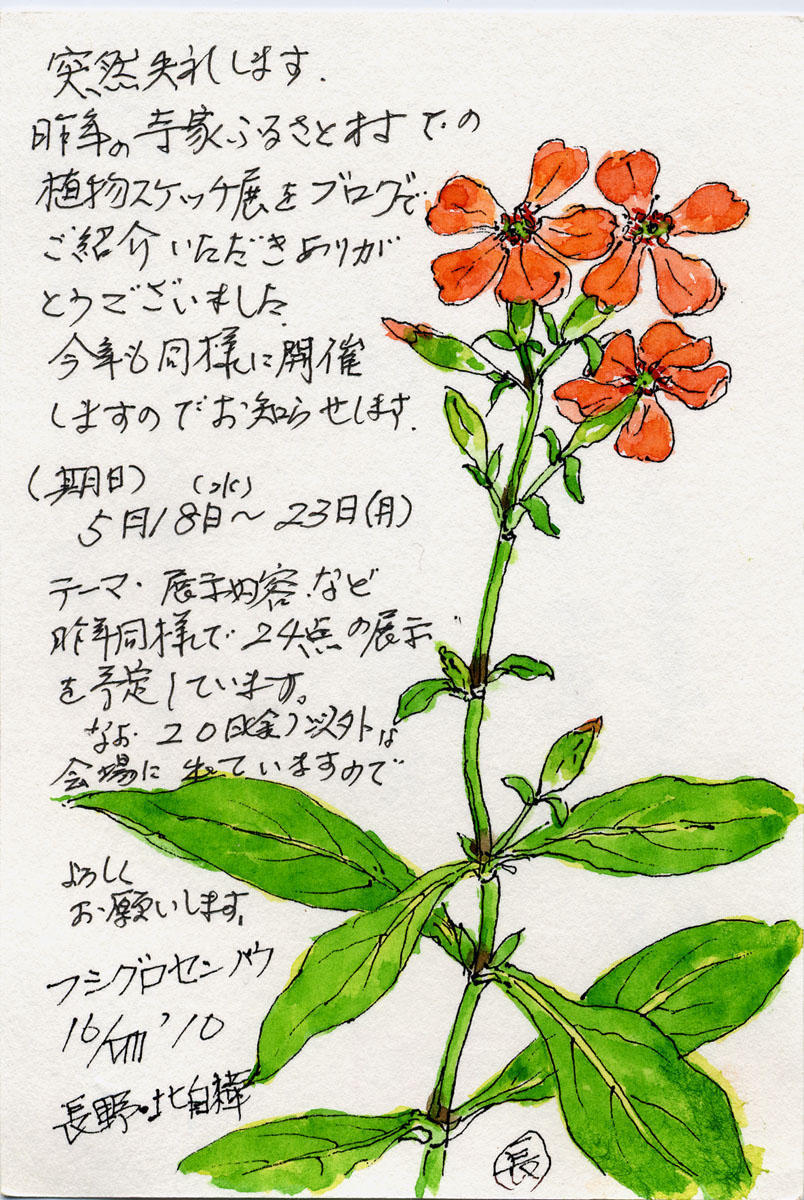 突然失礼します.
昨年の寺家ふるさと村での
植物スケッチ展をブログで
ご紹介いただきありが
とうございました.
今年も同様に開催
しますのでお知らせします.
(期日) (水)
5月18日〜23日(月)
テーマ・展示内容など
昨年同様で24点の展示
を予定しています。
なお20日(金)以外は
会場に出ていますので
よろしく
お願いします.
フシグロセンノウ
16/VIII '10
長野・北
長